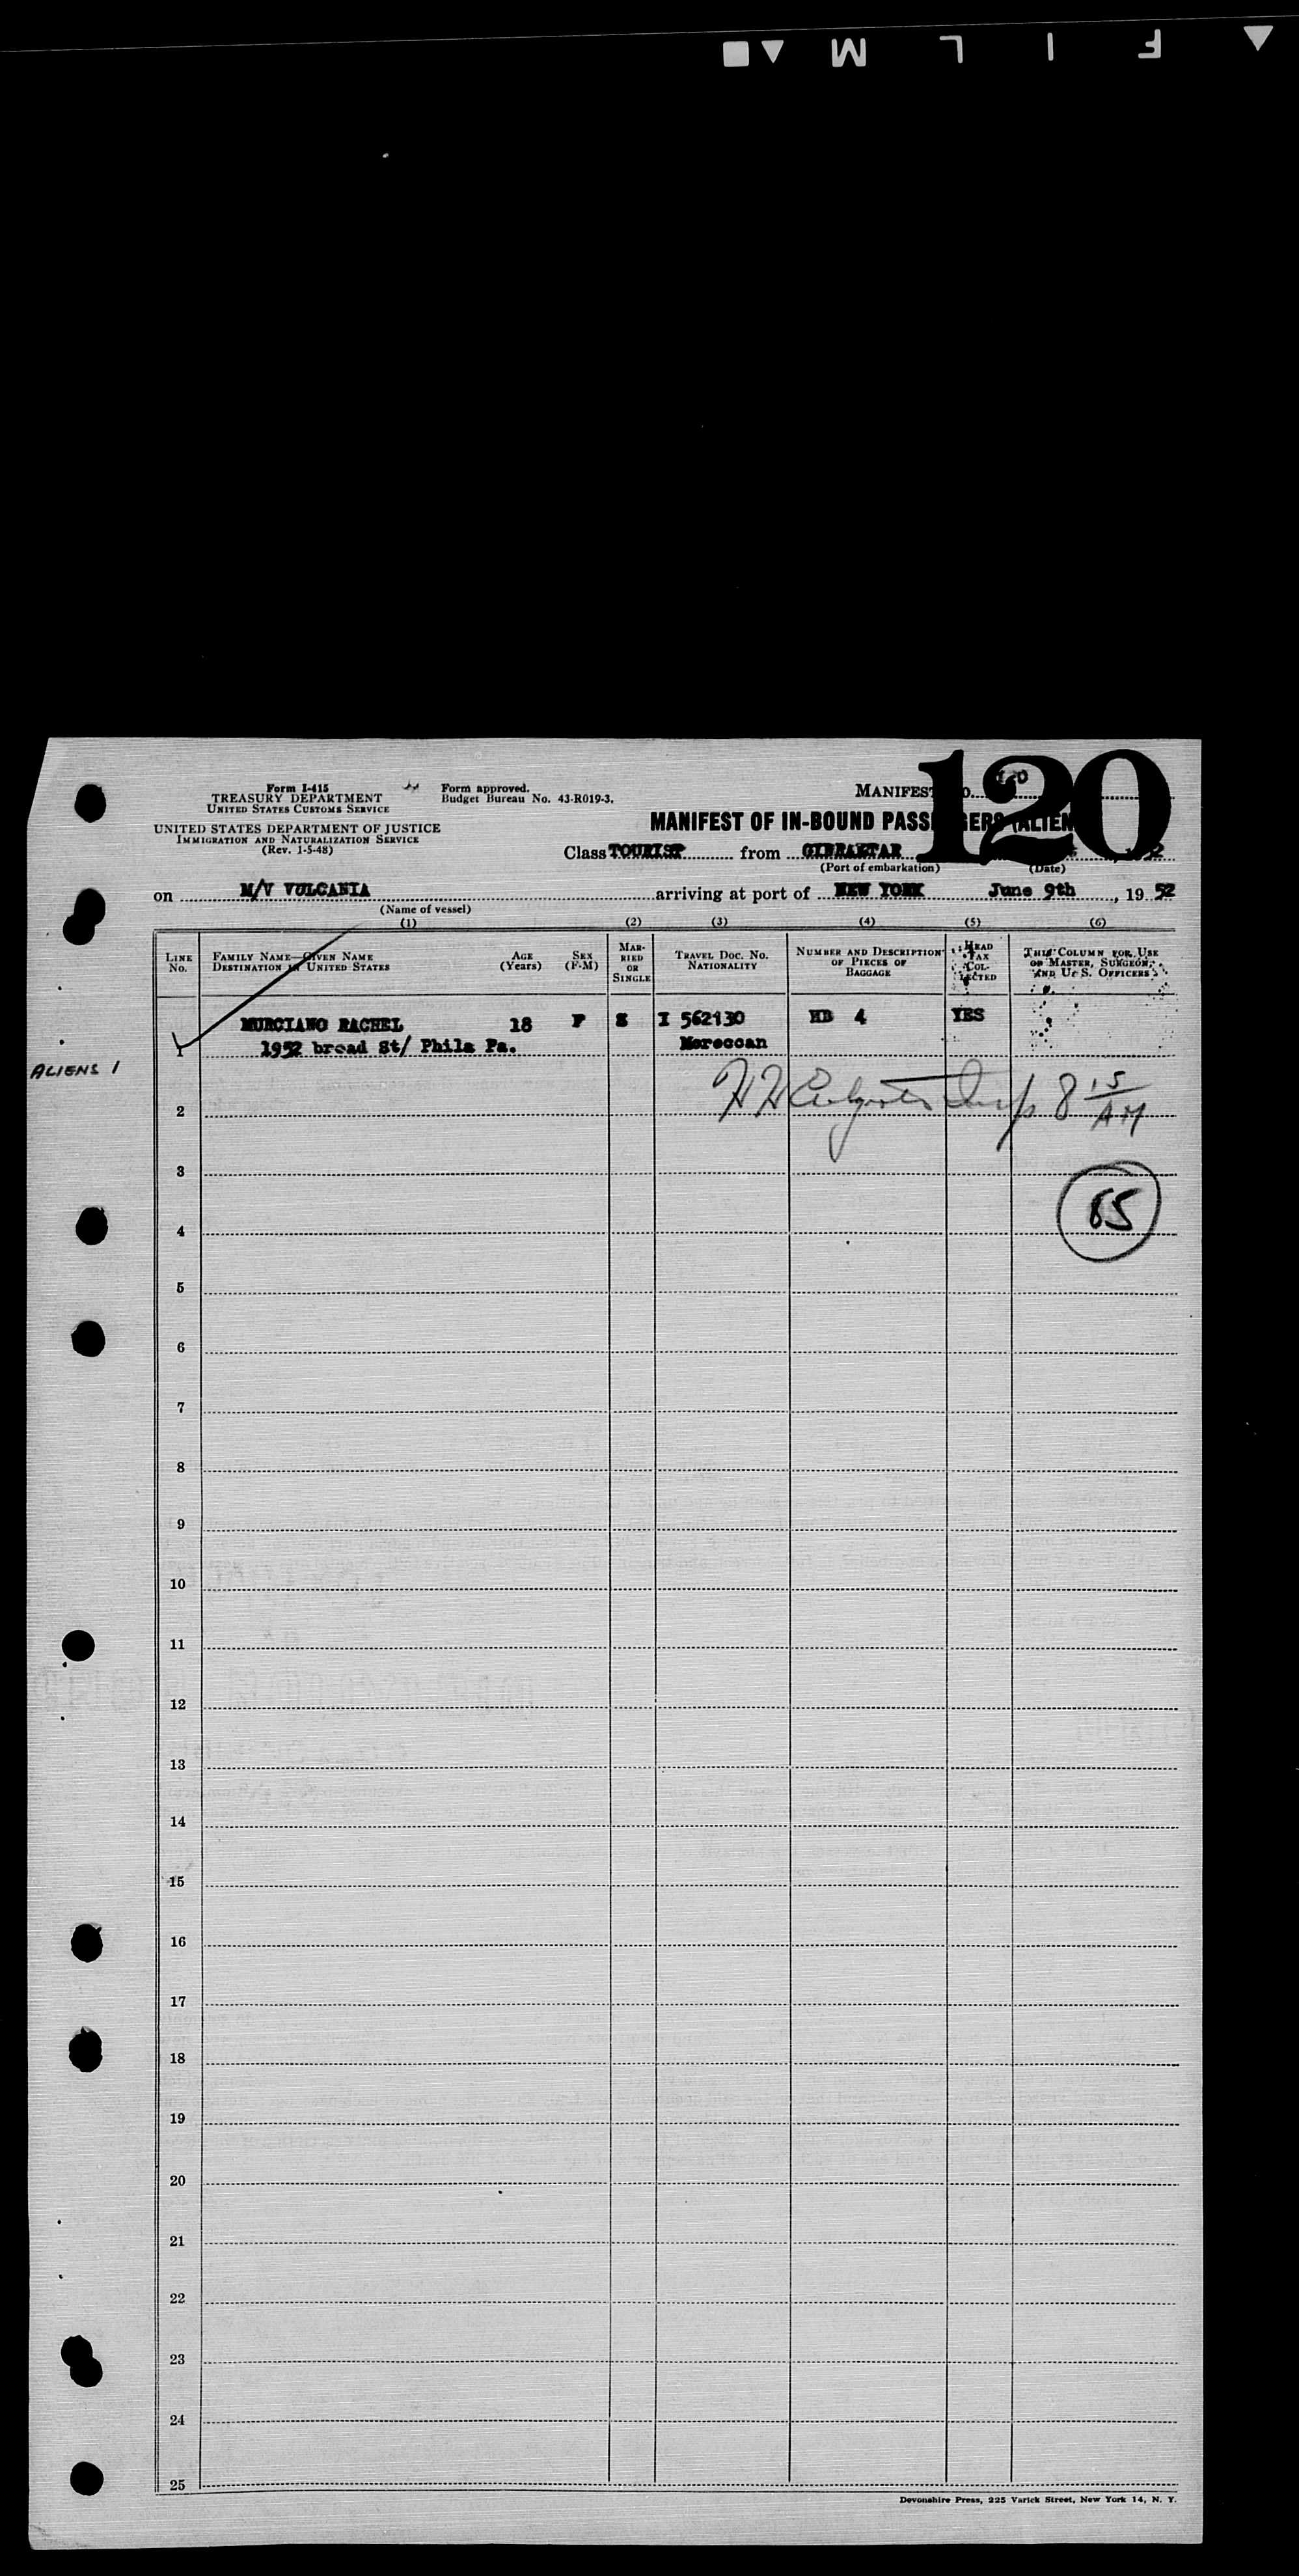 FILM
Form I-415
TREASURY DEPARTMENT
UNITED STATES CUSTOMS SERVICE
UNITED STATES DEPARTMENT OF JUSTICE
IMMIGRATION AND NATURALIZATION SERVICE
(Rev. 1-5-48)
Form approved.
Budget Bureau No. 43-R019-3.
MANIFEST
120
MANIFEST OF IN-BOUND PASSENGERS (ALIEN
Class TOURIST from GIBRALTAR
(Port of embarkation) (Date)
on M/V VULCANIA arriving at port of NEW YORK June 9th, 19 52
(Name of vessel)
(1) (2) (3) (4) (5) (6)
LINE No.
FAMILY NAME—GIVEN NAME
DESTINATION IN UNITED STATES
AGE (Years)
SEX (F-M)
MARRIED OR SINGLE
TRAVEL DOC. NO. NATIONALITY
NUMBER AND DESCRIPTION OF PIECES OF BAGGAGE
HEAD TAX COLLECTED
THIS COLUMN FOR USE OF MASTER, SURGEON, AND U. S. OFFICERS
MURCIANO RACHEL 18 F S I 562130 HB 4 YES
1 1952 broad St/ Phila Pa. Moroccan
ALIENS 1
8 15 AM
2
3
85
4
5
6
7
8
9
10
11
12
13
14
15
16
17
18
19
20
21
22
23
24
25
Devonshire Press, 225 Varick Street, New York 14, N. Y.